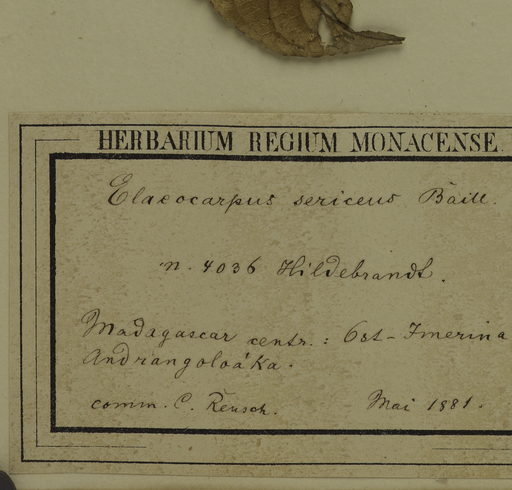 HERBARIUM REGIUM MONACENSE.
Elaeocarpus sericeus Baill.
n. 4036 Hildebrandt.
Madagascar centr.: Ost-Imerina
Andrangoloáka.
comm. C. Reusch. Mai 1881.